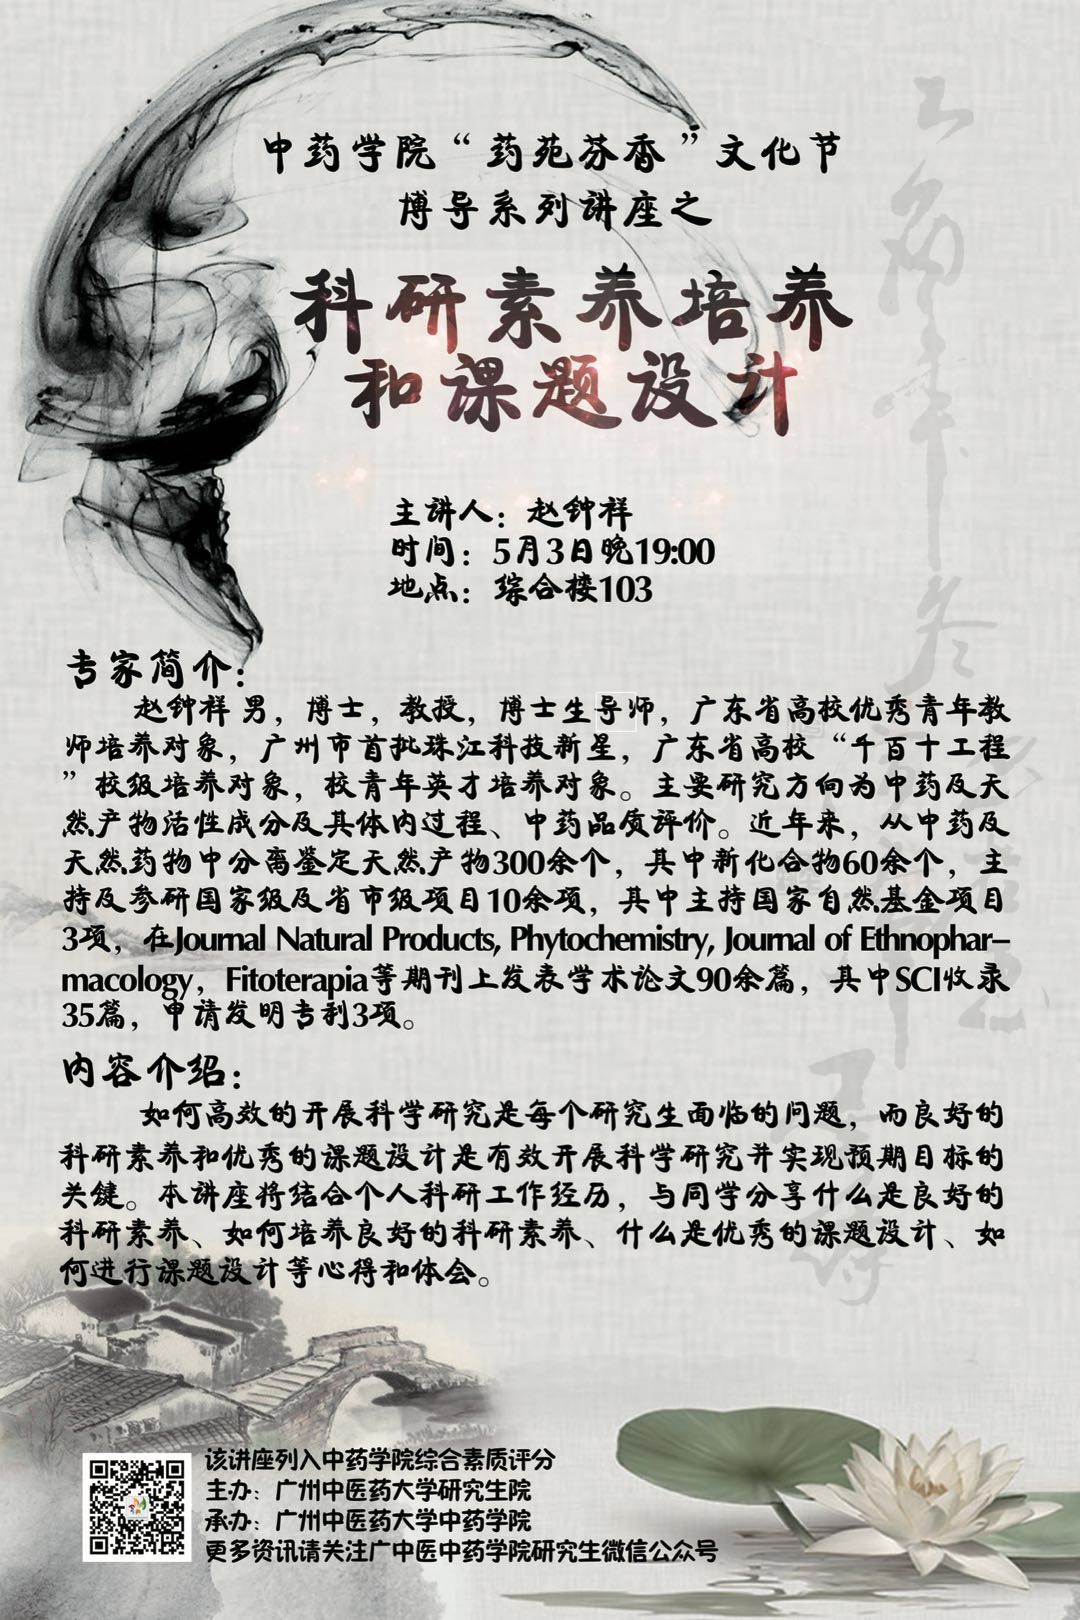 中药学院“药苑芬香”文化节
博导系列讲座之
科研素养培养
和课题设计
主讲人：赵钟祥
时间：5月3日晚19:00
地点：综合楼103
专家简介：
赵钟祥 男，博士，教授，博士生导师，广东省高校优秀青年教
师培养对象，广州市首批珠江科技新星，广东省高校“千百十工程
”校级培养对象，校青年英才培养对象。主要研究方向为中药及天
然产物活性成分及其体内过程、中药品质评价。近年来，从中药及
天然药物中分离鉴定天然产物300余个，其中新化合物60余个，主
持及参研国家级及省市级项目10余项，其中主持国家自然基金项目
3项，在Journal Natural Products, Phytochemistry, Journal of Ethnophar-
macology，Fitoterapia等期刊上发表学术论文90余篇，其中SCI收录
35篇，申请发明专利3项。
内容介绍：
如何高效的开展科学研究是每个研究生面临的问题，而良好的
科研素养和优秀的课题设计是有效开展科学研究并实现预期目标的
关键。本讲座将结合个人科研工作经历，与同学分享什么是良好的
科研素养、如何培养良好的科研素养、什么是优秀的课题设计、如
何进行课题设计等心得和体会。
该讲座列入中药学院综合素质评分
主办：广州中医药大学研究生院
承办：广州中医药大学中药学院
更多资讯请关注广中医中药学院研究生微信公众号